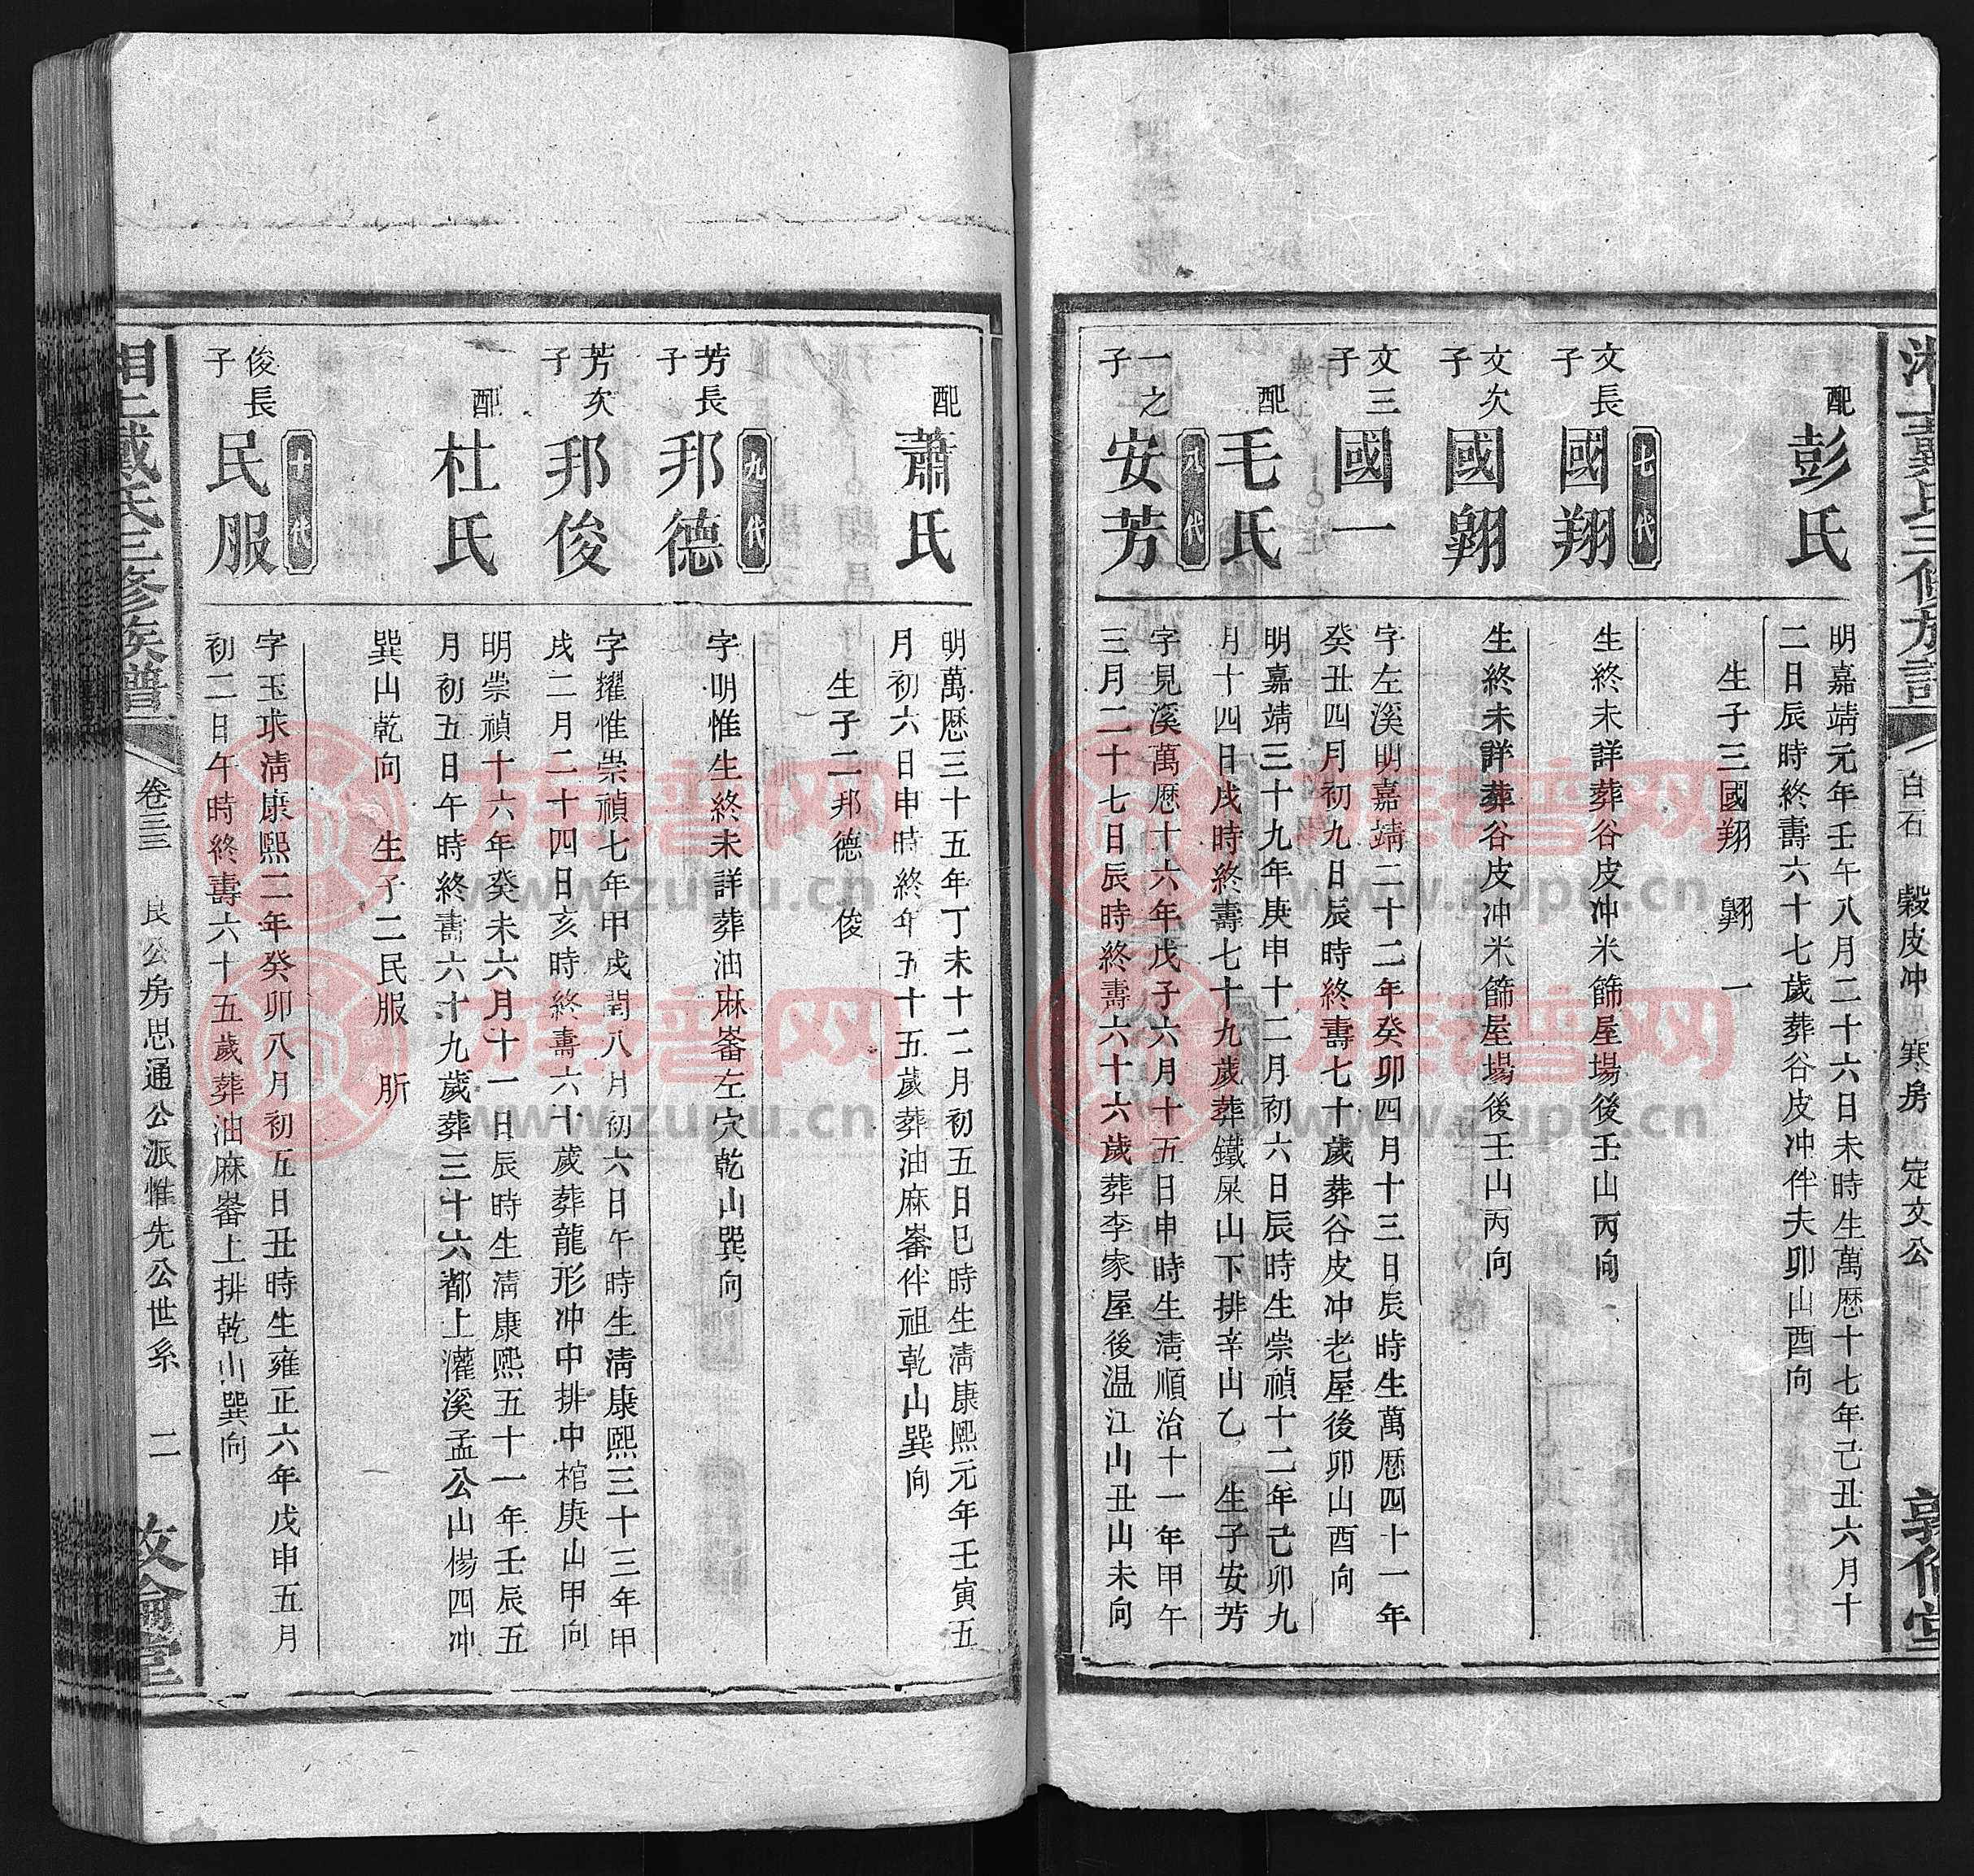 湘上戴氏三修族譜
白石 榖皮冲 寒房 定文公
敦倫堂
配
彭氏
明嘉靖元年壬午八月二十六日未時生萬厯十七年己丑六月十
二日辰時終壽六十七歲葬谷皮冲伴夫卯山酉向
生子三國翔 翺 一
七代
文長子
國翔
生終未詳葬谷皮冲米篩屋場後壬山丙向
文次子
國翺
生終未詳葬谷皮冲米篩屋場後壬山丙向
文三子
國一
字左溪明嘉靖二十二年癸卯四月十三日辰時生萬厯四十一年
癸丑四月初九日辰時終壽七十歲葬谷皮冲老屋後卯山酉向
配
毛氏
明嘉靖三十九年庚申十二月初六日辰時生崇禎十二年己卯九
月十四日戌時終壽七十九歲葬鐵屎山下排辛山乙 生子安芳
八代
一之子
安芳
字見溪萬厯十六年戊子六月十五日申時生清順治十一年甲午
三月二十七日辰時終壽六十六歲葬李家屋後温江山丑山未向
配
蕭氏
明萬厯三十五年丁未十二月初五日巳時生清康熙元年壬寅五
月初六日申時終年五十五歲葬油麻崙伴祖乾山巽向
生子二邦德 俊
九代
芳長子
邦德
字明惟生終未詳葬油麻崙左穴乾山巽向
芳次子
邦俊
字耀惟崇禎七年甲戌閏八月初六日午時生清康熙三十三年甲
戌二月二十四日亥時終壽六十歲葬龍形冲中排中棺庚山甲向
配
杜氏
明崇禎十六年癸未六月十一日辰時生清康熙五十一年壬辰五
月初五日午時終壽六十九歲葬三十六都上灌溪孟公山楊四冲
巽山乾向 生子二民服 所
十代
俊長子
民服
字玉求清康熙二年癸卯八月初五日丑時生雍正六年戊申五月
初二日午時終壽六十五歲葬油麻崙上排乾山巽向
湘上戴氏三修族譜
卷三三 艮公房思通公派惟先公世系 二
敦倫堂
族普网
www.zupu.cn
族普网
www.zupu.cn
族普网
www.zupu.cn
族普网
www.zupu.cn